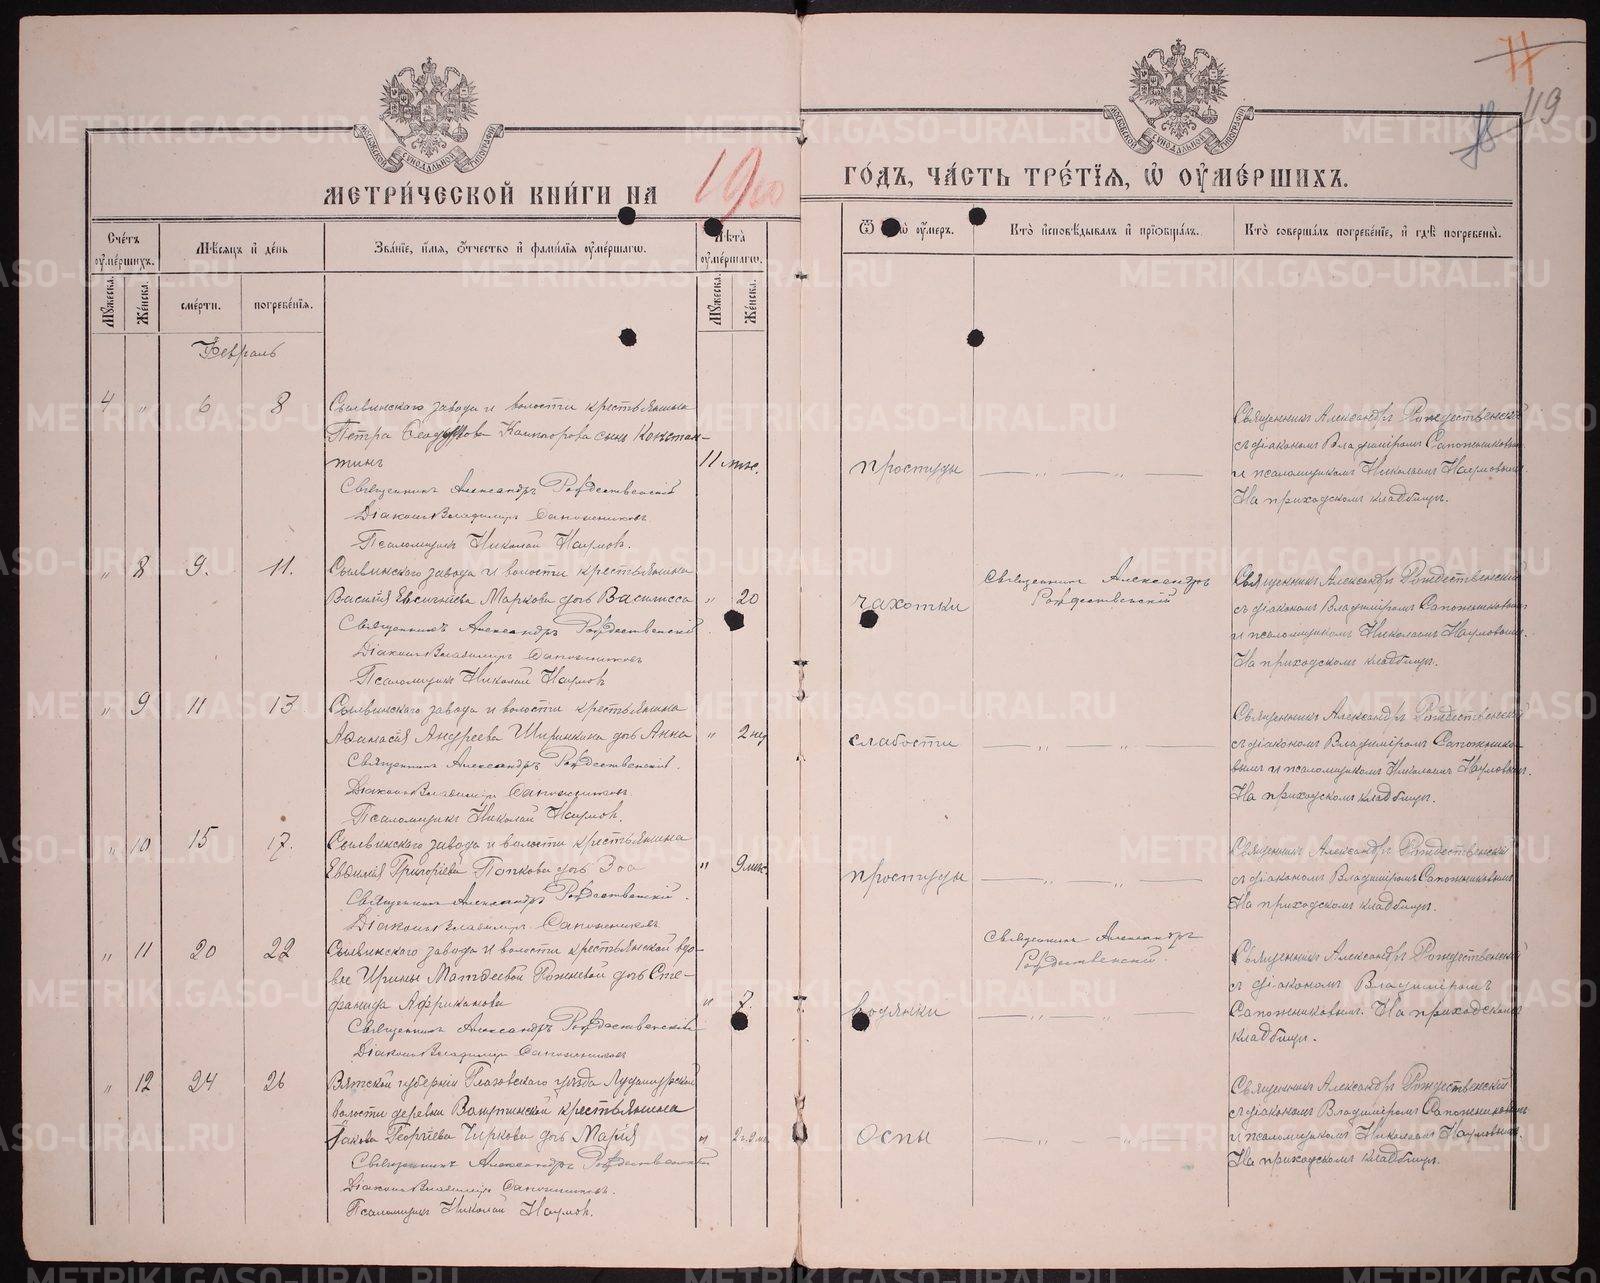 МЕТРИ́ЧЕСКОЙ КНИ́ГИ НА 1900 ГО́ДЪ, ЧА́СТЬ ТРЕ́ТІѦ, Ѡ ОУ҆МЕ́РШИХЪ.
119
Сче́тъ оу҆ме́ршихъ.
Мѣ́сѧцъ и де́нь
Зва́ніе, и́мѧ, ѻ́тчество и фами́лія оу҆ме́ршагѡ.
Лѣ́та оу҆ме́ршагѡ.
оу҆́меръ.
Кто̀ и҆сповѣ́дывалъ и҆ прїѡбща́лъ.
Кто̀ соверша́лъ погребе́нїе, и҆ гдѣ̀ погребены̀.
Мꙋ́жеска.
Же́нска.
сме́рти.
погребе́нїѧ.
Мꙋ́жеска.
Же́нска.
Февраль
4 " 6 8
Сылвинскаго завода и волости крестьянина
Петра Каппорова сынъ Констан-
тинъ
11 мѣс.
простуды
Священникъ Александръ Рождественскій
Діаконъ Владимиръ Сапожниковъ
Псаломщикъ Николай Наумовъ.
Священникъ Александръ Рождественскій
съ діакономъ Владиміромъ Сапожниковымъ
и псаломщикомъ Николаемъ Наумовымъ.
На приходскомъ кладбищѣ.
" 8 9. 11.
Сылвинскаго завода и волости крестьянина
Василія Евсигнѣева Маркова дочь Василисса
" 20
чахотки
Священникъ Александръ Рождественскій
Діаконъ Владимиръ Сапожниковъ
Псаломщикъ Николай Наумовъ
Священникъ Александръ
Рождественскій
Священникъ Александръ Рождественскій
съ діакономъ Владиміромъ Сапожниковымъ
и псаломщикомъ Николаемъ Наумовымъ.
На приходскомъ кладбищѣ.
" 9 11 13
Сылвинскаго завода и волости крестьянина
Аѳанасія Андреева Ширинкина дочь Анна
" 2 нед
слабости
Священникъ Александръ Рождественскій.
Діаконъ Владимиръ Сапожниковъ.
Псаломщикъ Николай Наумовъ.
Священникъ Александръ Рождественскій
съ діакономъ Владиміромъ Сапожнико-
вымъ и псаломщикомъ Николаемъ Наумовымъ.
На приходскомъ кладбищѣ.
" 10 15 17.
Сылвинскаго завода и волости крестьянина
Евѳимія Григоріева Папкова дочь Зоа
" 9 мѣс.
простуды
Священникъ Александръ Рождественскій.
Діаконъ Владимиръ Сапожниковъ
Священникъ Александръ Рождественскій
съ діакономъ Владиміромъ Сапожниковымъ.
На приходскомъ кладбищѣ.
" 11 20 22
Сылвинскаго завода и волости крестьянской вдо-
вы Ирины Матѳеевой Рожневой дочь Сте-
фанида Африканова
" 7.
водянки
Священникъ Александръ Рождественскій
Діаконъ Владимиръ Сапожниковъ
Священникъ Александръ
Рождественскій.
Священникъ Александръ Рождественскій
съ діакономъ Владиміромъ
Сапожниковымъ. На приходскомъ
кладбищѣ.
" 12 24 26
Вятской губерніи Глазовскаго уѣзда Лудошурской
волости деревни крестьянина
Іакова Георгіева Чиркова дочь Марія
" 2 г. 2 м.
Оспы
Священникъ Александръ Рождественскій
Діаконъ Владимиръ Сапожниковъ.
Псаломщикъ Николай Наумовъ.
Священникъ Александръ Рождественскій
съ діакономъ Владиміромъ Сапожниковымъ
и псаломщикомъ Николаемъ Наумовымъ.
На приходскомъ кладбищѣ.
METRIKI.GASO-URAL.RU